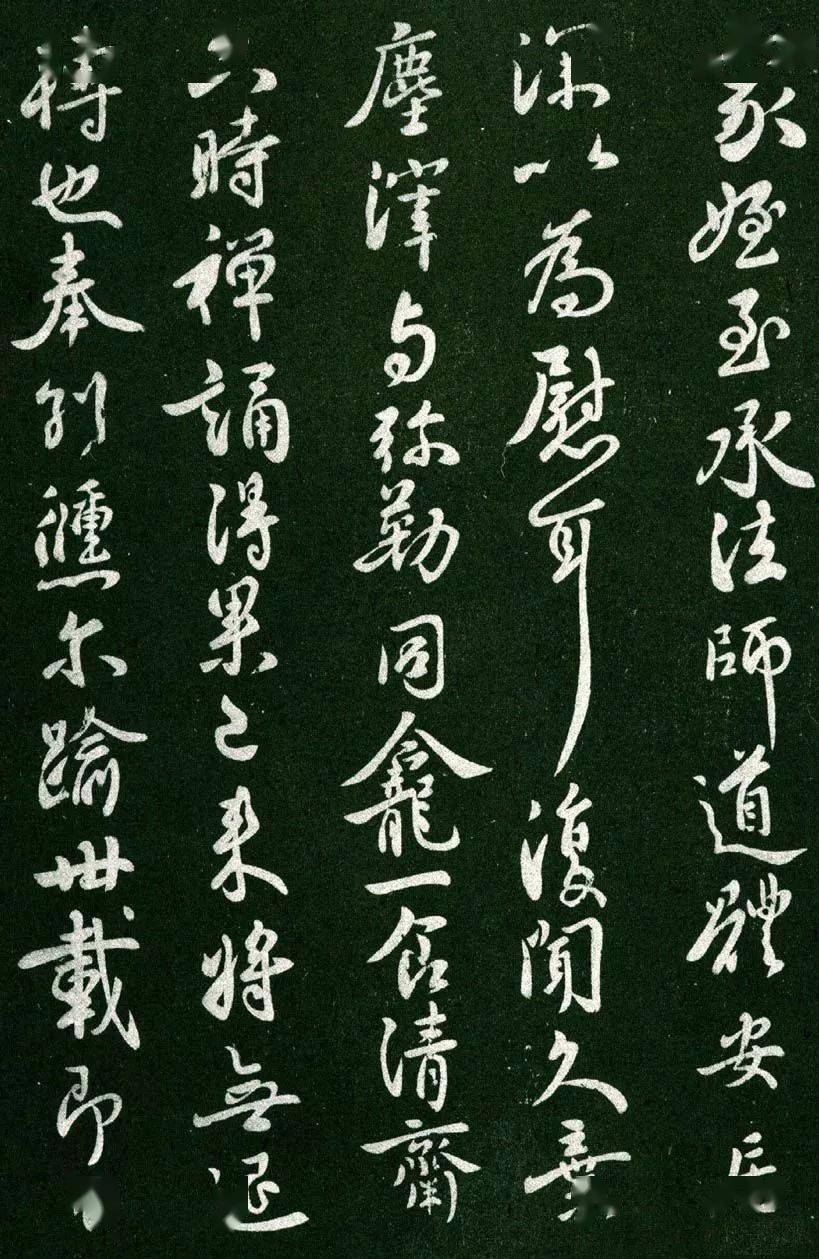 家姪至承法師道體安居
深以為慰耳復聞久棄
塵滓与弥勒同龕一食清齋
六時禪誦得果已来將無退
轉也奉別儵尔踰卅載即